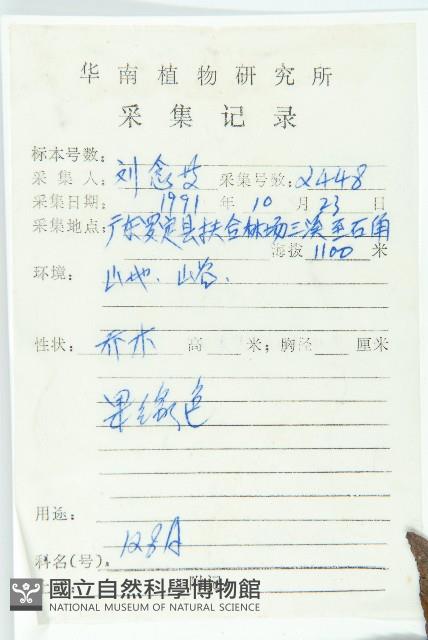 华南植物研究所
采集记录
标本号数:
采集人: 刘念 采集号数: 2448
采集日期: 1991 年 10 月 23 日
采集地点: 广东罗定县扶合林场三溪至石角
海拔 1100 米
环境: 山地、山谷.
性状: 乔木 高 米; 胸泾 厘米
果绿色
用途:
科名(号).
附记
國立自然科學博物館
NATIONAL MUSEUM OF NATURAL SCIENCE